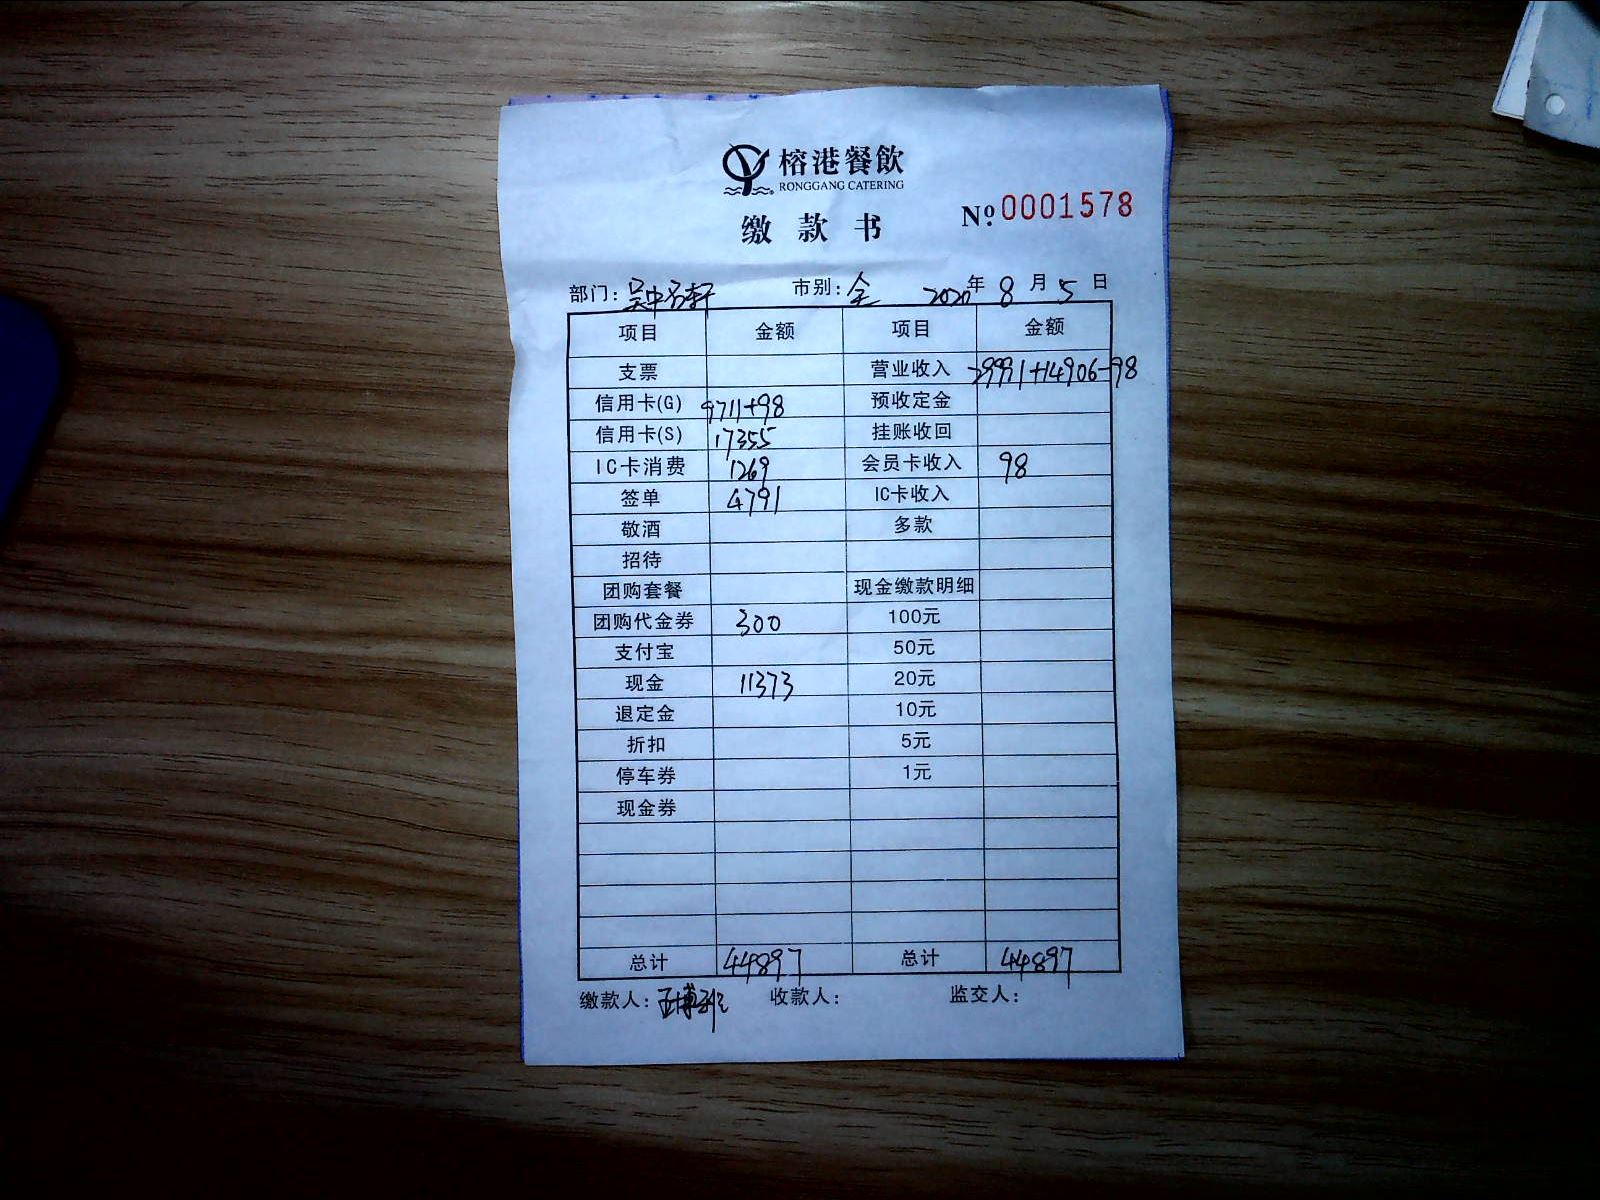 榕港餐飲
RONGGANG CATERING
缴款书 Nº 0001578
部门: 吴中名轩 市别: 全 2020年 8月 5日
项目 金额 项目 金额
支票 营业收入 29991+14906-98
信用卡(G) 9711+98 预收定金
信用卡(S) 17355 挂账收回
IC卡消费 1269 会员卡收入 98
签单 4791 IC卡收入
敬酒 多款
招待
团购套餐 现金缴款明细
团购代金券 300 100元
支付宝 50元
现金 11373 20元
退定金 10元
折扣 5元
停车券 1元
现金券
总计 44897 总计 44897
缴款人: 收款人: 监交人: